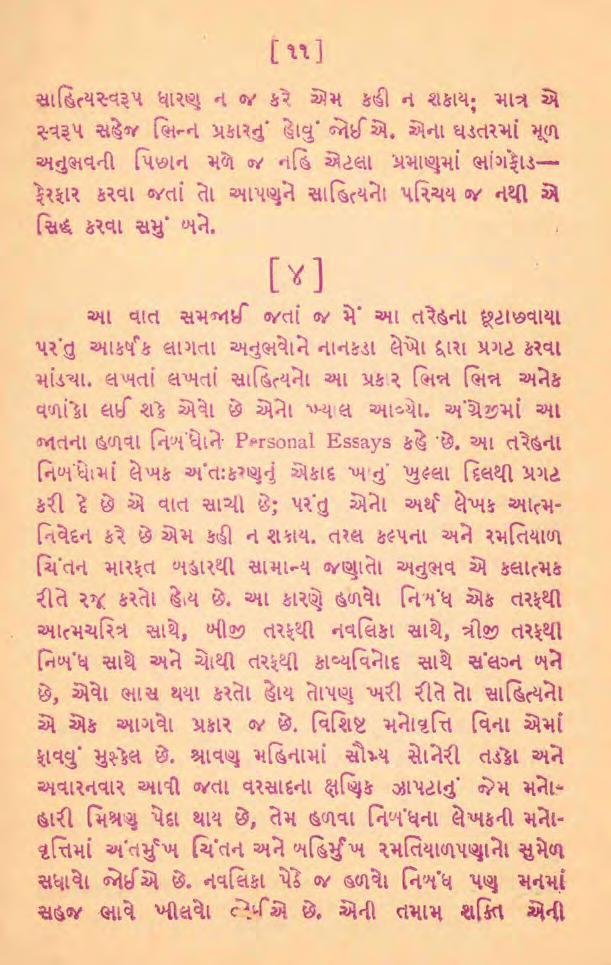 [ ૧૧ ]
સાહિત્યસ્વરૂપ ધારણ ન જ કરે એમ કહી ન શકાય; માત્ર એ
સ્વરૂપ સહેજ ભિન્ન પ્રકારનું હોવું જોઈએ. એના ઘડતરમાં મૂળ
અનુભવની પિછાન મળે જ નહિ એટલા પ્રમાણમાં ભાંગફોડ—
ફેરફાર કરવા જતાં તો આપણને સાહિત્યનો પરિચય જ નથી એ
સિદ્ધ કરવા સમું બને.
[ ૪ ]
આ વાત સમજાઈ જતાં જ મેં આ તરેહના છૂટાછવાયા
પરંતુ આકર્ષક લાગતા અનુભવોને નાનકડા લેખો દ્વારા પ્રગટ કરવા
માંડ્યા. લખતાં લખતાં સાહિત્યનો આ પ્રકાર ભિન્ન ભિન્ન અનેક
વળાંકો લઈ શકે એવો છે એનો ખ્યાલ આવ્યો. અંગ્રેજીમાં આ
જાતના હળવા નિબંધોને Personal Essays કહે છે. આ તરેહના
નિબંધોમાં લેખક અંતઃકરણનું એકાદ ખાનું ખુલ્લા દિલથી પ્રગટ
કરી દે છે એ વાત સાચી છે; પરંતુ એનો અર્થ લેખક આત્મ-
નિવેદન કરે છે એમ કહી ન શકાય. તરલ કલ્પના અને રમતિયાળ
ચિંતન મારફત બહારથી સામાન્ય જણાતો અનુભવ એ કલાત્મક
રીતે રજૂ કરતો હોય છે. આ કારણે હળવો નિબંધ એક તરફથી
આત્મચરિત્ર સાથે, બીજી તરફથી નવલિકા સાથે, ત્રીજી તરફથી
નિબંધ સાથે અને ચોથી તરફથી કાવ્યવિનોદ સાથે સંલગ્ન બને
છે, એવો ભાસ થયા કરતો હોય તોપણ ખરી રીતે તો સાહિત્યનો
એ એક આગવો પ્રકાર જ છે. વિશિષ્ટ મનોવૃત્તિ વિના એમાં
ફાવવું મુશ્કેલ છે. શ્રાવણ મહિનામાં સૌમ્ય સોનેરી તડકો અને
અવારનવાર આવી જતા વરસાદના ક્ષણિક ઝાપટાનું જેમ મનો-
હારી મિશ્રણ પેદા થાય છે, તેમ હળવા નિબંધના લેખકની મનો-
વૃત્તિમાં અંતર્મુખ ચિંતન અને બહિર્મુખ રમતિયાળપણાનો સુમેળ
સધાવો જોઈએ છે. નવલિકા પેઠે જ હળવો નિબંધ પણ મનમાં
સહજ ભાવે ખીલવો જોઈએ છે. એની તમામ શક્તિ એની